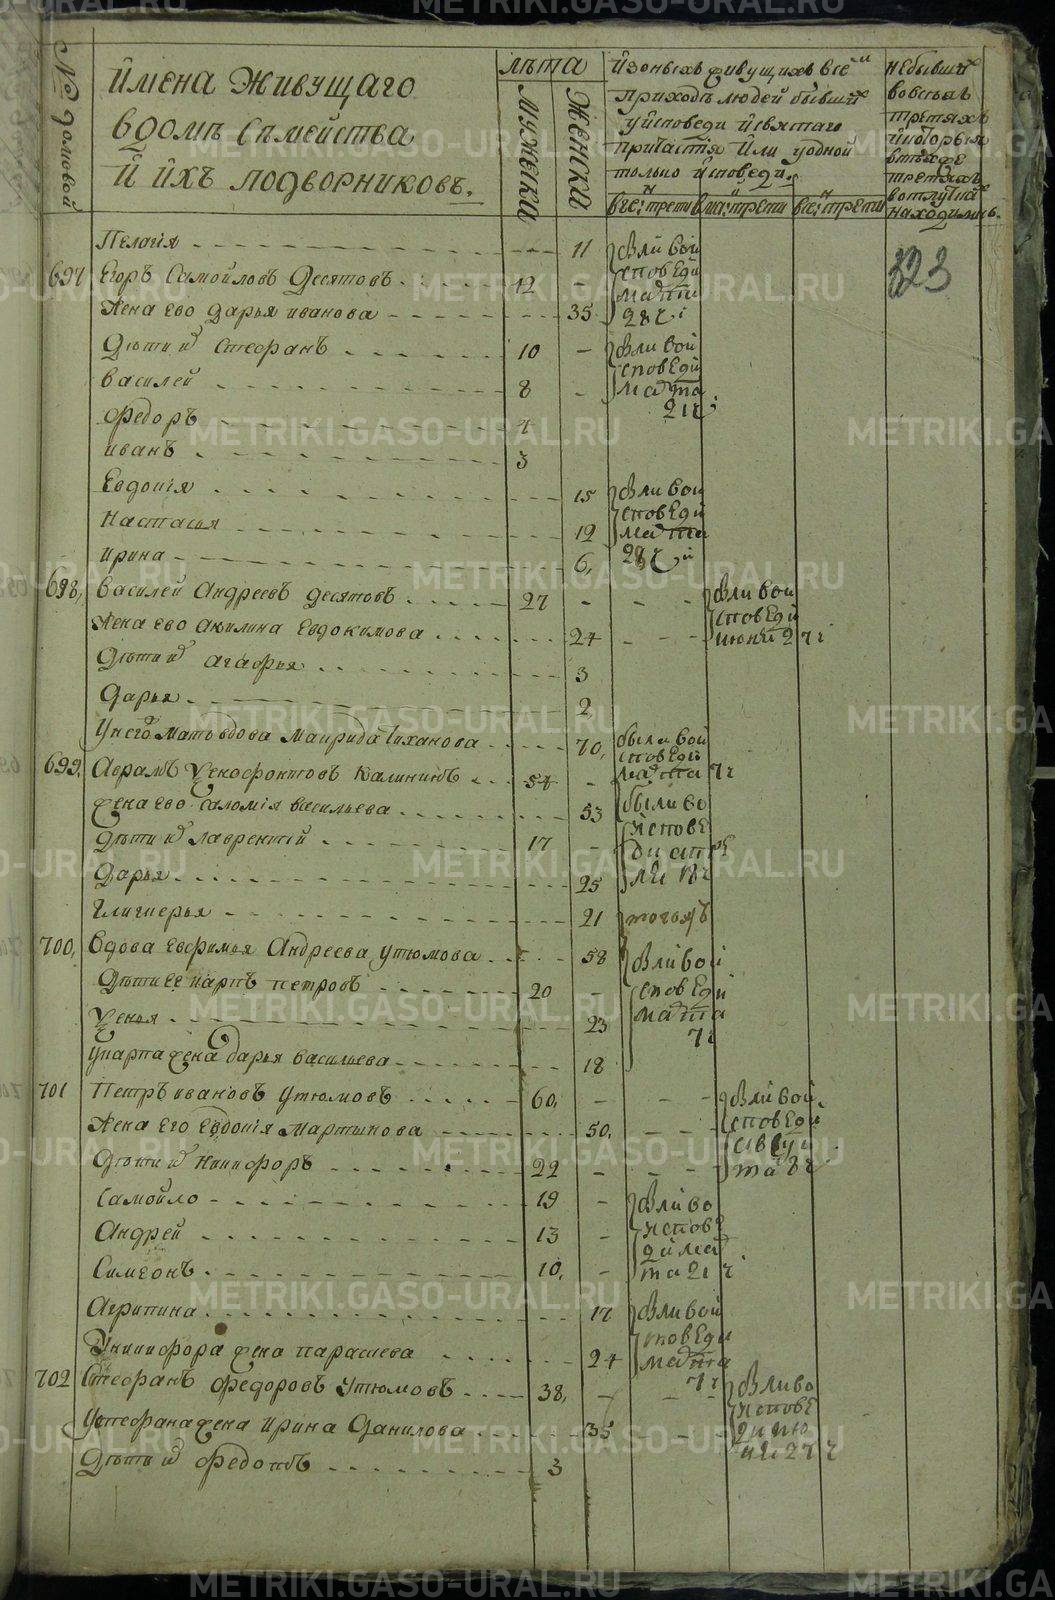 № домовой
Имена живущаго
вдомѣ семейства
И ихъ подворниковъ.
лѣта
мужеска
женска
изоныхъ живущихъ все
приходѣ людей бывшïй
уисповеди исвятаго
причастïя или уодной
только исповеди.
небывшïй
вовсѣхъ
третяхъ
икоторыя
втѣхже
третяхъ
вотлучкѣ
находились.
323
Пелагïя 11
были вои
споведи
марта
28 чи
697 Егоръ Самойловъ Десятовъ 42 -
Жена ево дарья иванова 35
Дѣти и Стефанъ 10 -
были вои
споведи
марта
21 ч
василей 8 -
Федоръ 4
иванъ 3
Евдокïя 15
были вои
споведи
марта
28 ч
Настасья 12
ирина 6,
698, василей Андреевъ десятовъ 27 - - -
были вои
споведи
июни 27 ч
Жена ево акилина Евдокимова 24 - - -
Дѣти и агафья 3
Дарья 2
Унего мать вдова Маирида Тиханова 70,
были вои
споведи
марта 7 ч
699, Аврамъ Ѯенофонтовъ Калининъ 54 -
жена ево Саломïя васильева 53
были во
испове
ди апре
ля 18 ч
Дѣти и лаврентïй 17 -
Дарья 25
Гликиерья 21
тогожъ
700, вдова Евфимья Андреева утюмова 58
были вои
споведи
марта
7 ч
Дѣти ее карпъ петровъ 20 -
Ѯенья 23
укарпа жена дарья васильева 18
701 Петръ ивановъ утюмовъ 60, - - -
были вои
споведи
Жена Его Евдокïя Мартынова 50, - - -
Дѣти и никифоръ 22 - - -
Самойло 19 -
были во
испове
ди мар
та 21 ч
Андрей 13 -
Симеонъ 10, -
Агрипина 17
были вои
споведи
марта
7 ч
Уникифора жена парасиева 24
702 Стефанъ федоровъ Утюмовъ 38, - - -
были во
испове
ди ию
ни 27 ч
Устефана жена ирина Данилова 35 - - -
Дѣти и федотъ 3
METRIKI.GASO-URAL.RU